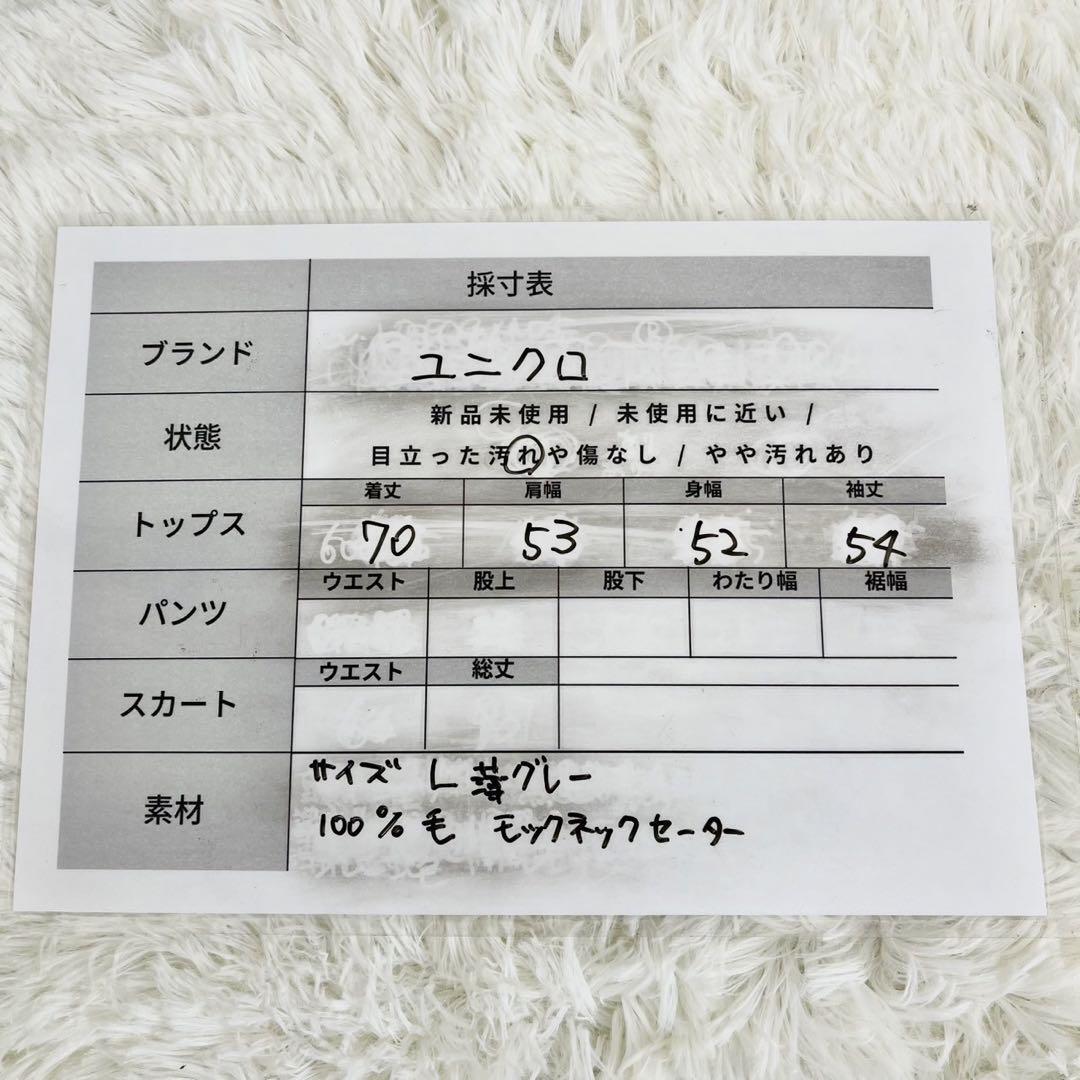 採寸表
ブランド ユニクロ
状態 新品未使用 / 未使用に近い /
目立った汚れや傷なし / やや汚れあり
トップス 着丈 肩幅 身幅 袖丈
70 53 52 54
パンツ ウエスト 股上 股下 わたり幅 裾幅
スカート ウエスト 総丈
素材 サイズ L 薄グレー
100% 毛 モックネックセーター